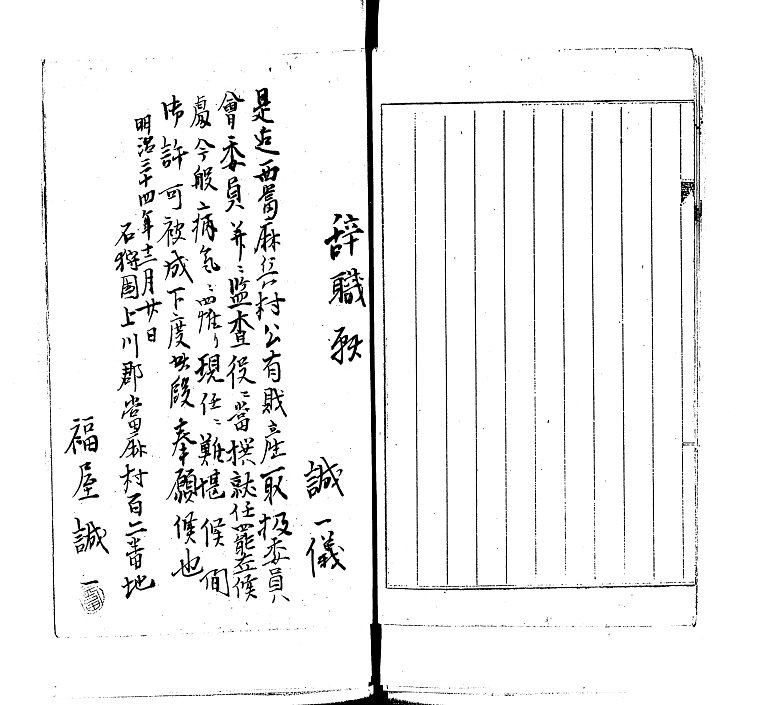 辞職願
誠一儀
是迄西當麻兵村公有財産取扱委員
會委員并ニ監査役ニ當撰就任罷在候
處今般病気ニ罹リ現任ニ難堪候間
御許可被成下度此段奉願候也
明治三十四年十二月廿日
石狩國上川郡當麻村百二番地
福屋誠一